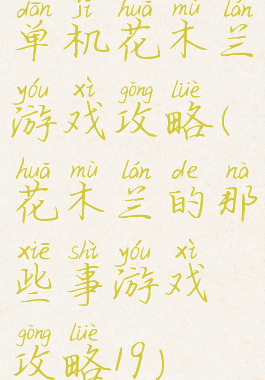 dān jī huā mù lán
单机花木兰
yóu xì gōng lüè
游戏攻略(
huā mù lán de nà
花木兰的那
xiē shì yóu xì
些事游戏
gōng lüè
攻略19)